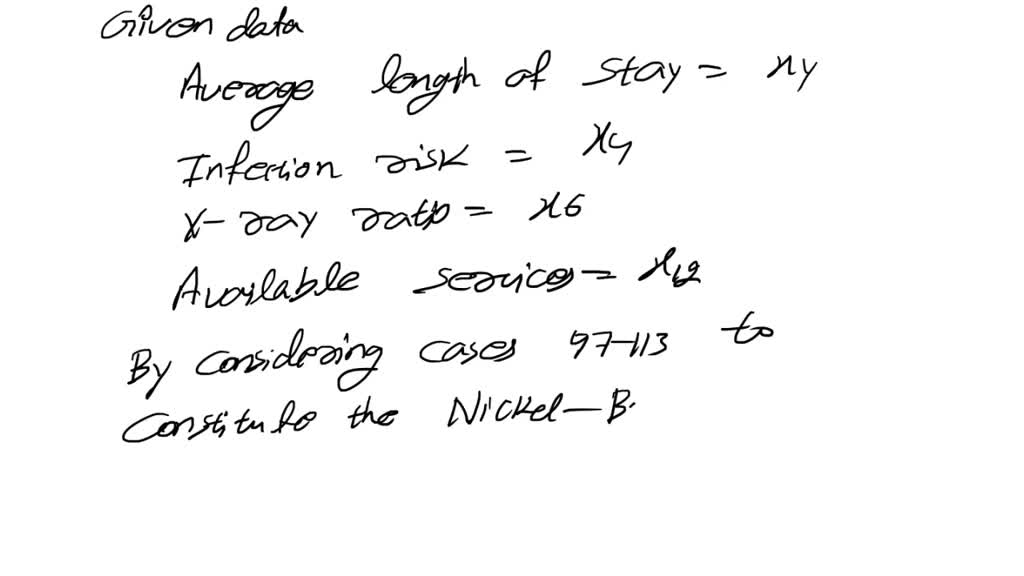 Given data
Average length of stay = xy
Infection risk = x4
X-ray ratio = x6
Available services = x12
By considering cases 97-113 to
Constitute the Nickel-B.